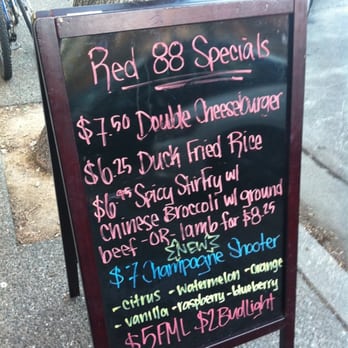 Red 88 Specials
$7.50 Double Cheeseburger
$6.25 Duck Fried Rice
$6.95 Spicy Stir Fry w/
Chinese Broccoli w/ ground
beef -OR- lamb for $8.25
NEW
$7 Champagne Shooter
- citrus - watermelon - orange
- vanilla - raspberry - blueberry
$5 FML $2 Bud Light